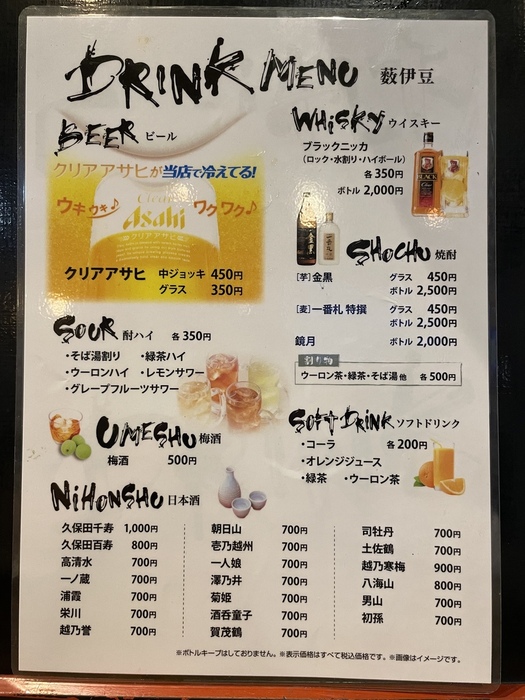 DRINK MENU 薮伊豆
BEER ビール
クリアアサヒが当店で冷えてる!
ウキウキ♪ ワクワク♪
Clear
Asahi
クリアアサヒ
クリアアサヒ 中ジョッキ 450円
グラス 350円
WHiSKY ウイスキー
ブラックニッカ
(ロック・水割り・ハイボール)
各350円
ボトル 2,000円
BLACK
SHOCHU 焼酎
[芋]金黒 グラス 450円
ボトル 2,500円
[麦]一番札 特撰 グラス 450円
ボトル 2,500円
鏡月 ボトル 2,000円
割り物
ウーロン茶・緑茶・そば湯 他 各500円
SOUR 酎ハイ 各350円
・そば湯割り ・緑茶ハイ
・ウーロンハイ ・レモンサワー
・グレープフルーツサワー
UMESHU 梅酒
梅酒 500円
SOFT DRINK ソフトドリンク
・コーラ 各200円
・オレンジジュース
・緑茶 ・ウーロン茶
NiHONSHU 日本酒
久保田千寿 1,000円
久保田百寿 800円
高清水 700円
一ノ蔵 700円
浦霞 700円
栄川 700円
越乃誉 700円
朝日山 700円
壱乃越州 700円
一人娘 700円
澤乃井 700円
菊姫 700円
酒呑童子 700円
賀茂鶴 700円
司牡丹 700円
土佐鶴 700円
越乃寒梅 900円
八海山 800円
男山 700円
初孫 700円
※ボトルキープはしておりません。※表示価格はすべて税込価格です。※画像はイメージです。